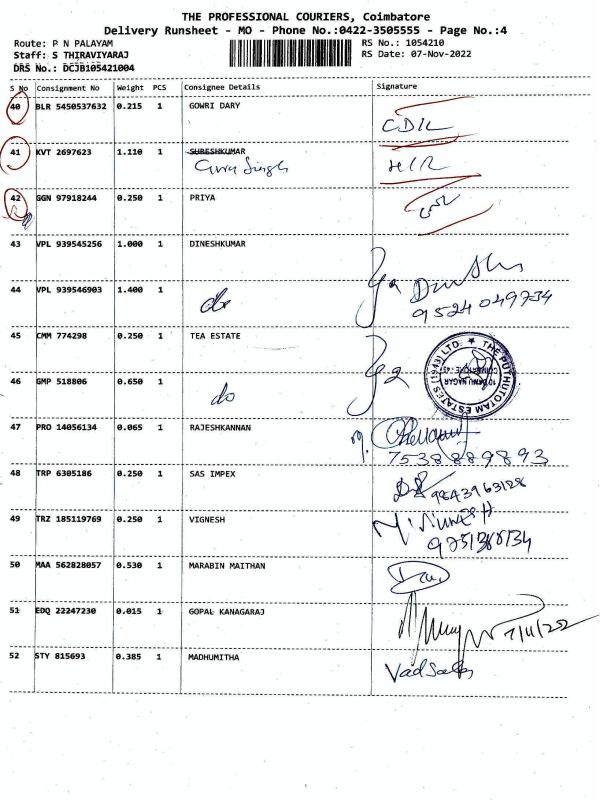 THE PROFESSIONAL COURIERS, Coimbatore
Delivery Runsheet - MO - Phone No.:0422-3505555 - Page No.:4
Route: P N PALAYAM
RS No.: 1054210
Staff: S THIRAVIYARAJ
RS Date: 07-Nov-2022
DRS No.: DCJB105421004
S No Consignment No Weight PCS Consignee Details Signature
40 BLR 5450537632 0.215 1 GOWRI DARY
41 KVT 2697623 1.110 1 SURESHKUMAR
Guru Singh
42 GGN 97918244 0.250 1 PRIYA
43 VPL 939545256 1.000 1 DINESHKUMAR
44 VPL 939546903 1.400 1 do
9524049734
45 CMM 774298 0.250 1 TEA ESTATE
THE PUTHUTOTAM ESTATES (1943) LTD.
46 GMP 518806 0.650 1 do
47 PRO 14056134 0.065 1 RAJESHKANNAN
7538889893
48 TRP 6305186 0.250 1 SAS IMPEX
9843963128
49 TRZ 185119769 0.250 1 VIGNESH
50 MAA 562828057 0.530 1 MARABIN MAITHAN
51 EDQ 22247230 0.015 1 GOPAL KANAGARAJ
52 STY 815693 0.385 1 MADHUMITHA